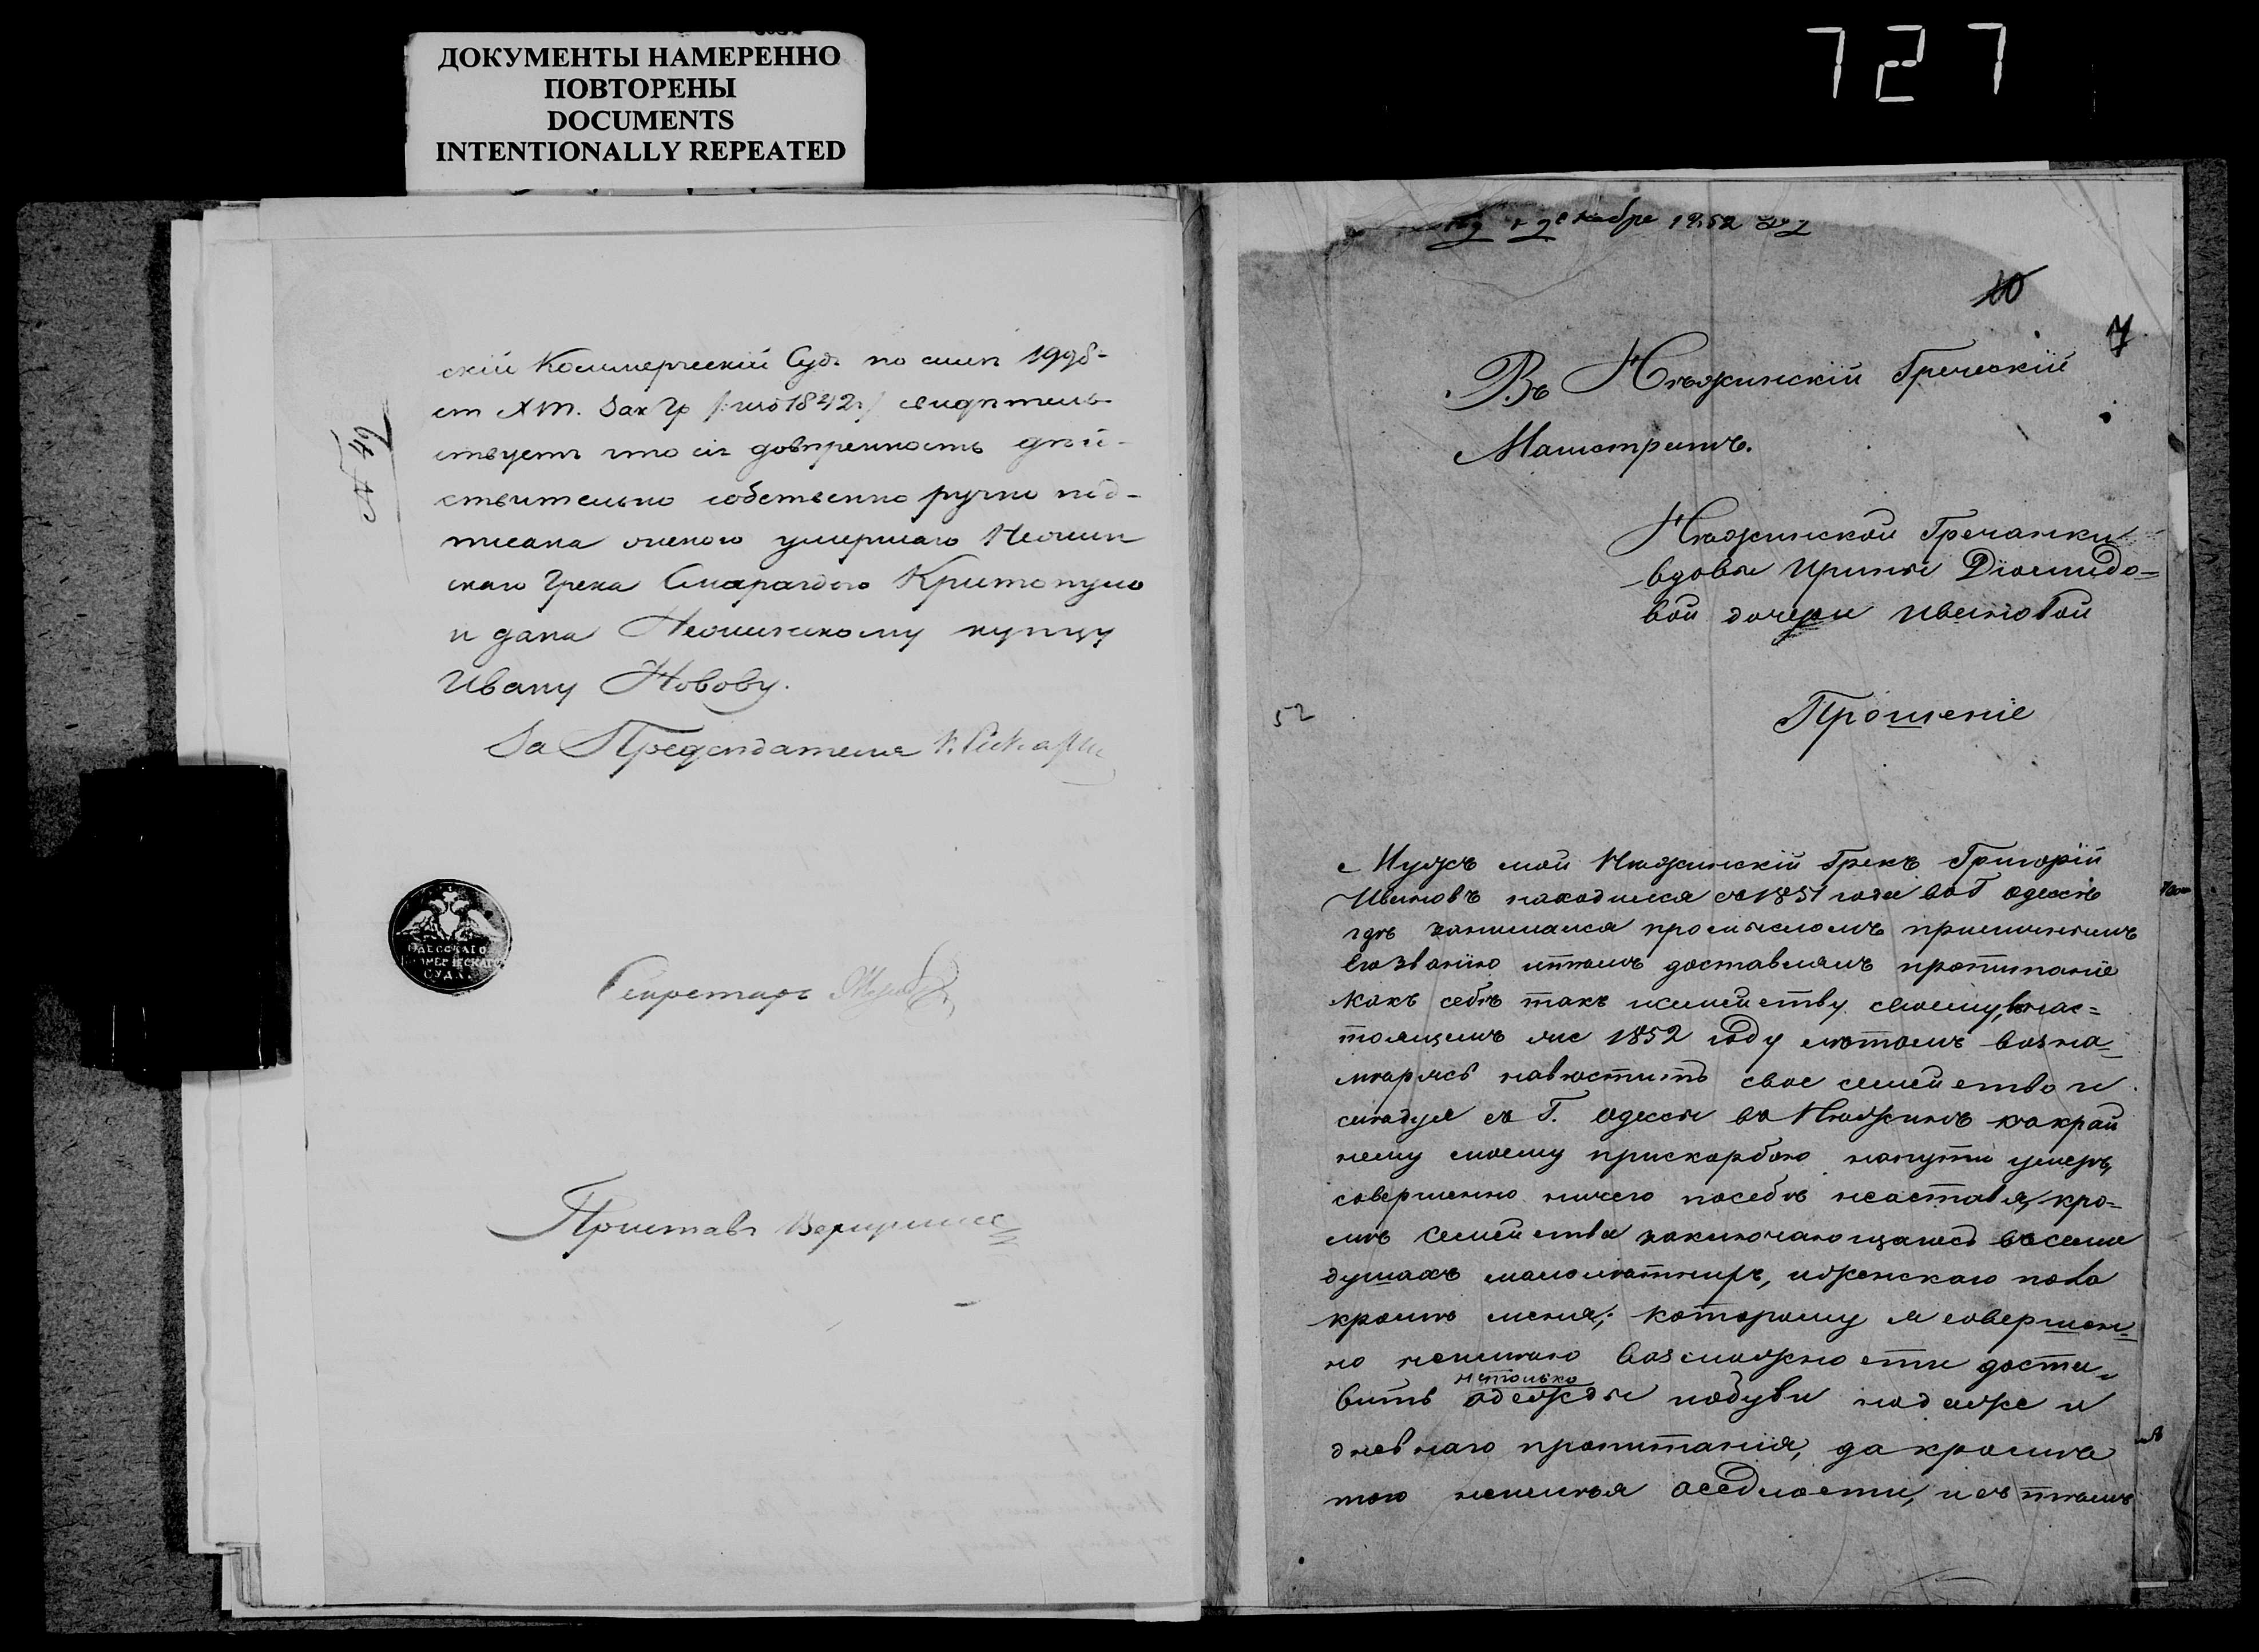 ДОКУМЕНТЫ НАМЕРЕННО
ПОВТОРЕНЫ
DOCUMENTS
INTENTIONALLY REPEATED
727
№ 49
скій Коммерческій Судъ по силѣ
ст X т. Зак Гр 1842 свидѣтель-
ствуетъ что сія довѣренность дѣй-
ствительно собственно ручно под-
писана умершаго Нѣжин
скаго Грека Смарагдою Критопуло
и дана Нѣжинскому купцу
Ивану Новову.
За Предсѣдателя
ОДЕССКАГО
КОММЕРЧЕСКАГО
СУДА
Секретарь
Приставъ
декабря 1852
10
7
Въ Нѣжинскій Греческій
Магистратъ.
Нѣжинской Гречанки
вдовы Ирины Діомидо=
вой дочери Ивановой
52
Прошеніе
Мужъ мой Нѣжинскій Грекъ Григорій
Ивановъ находился съ 1851 года въ Г Одессѣ
гдѣ занимался промысломъ приличнымъ
его званію и тѣмъ доставлялъ пропитаніе
какъ себѣ такъ и семейству своему, въ нас=
тоящемъ же 1852 году лѣтомъ возна=
мѣрясь навѣстить свое семейство и
слѣдуя съ Г. Одессы въ Нѣжинъ къ край
нему моему прискорбію на пути умеръ,
совершенно ничего по себѣ не оставя, кро=
мѣ семейства заключающагось въ семи
душахъ малолѣтныхъ, и женскаго пола
кромѣ меня; которому я совершен=
но не имѣю возможности доста=
вить нетолько одежды и обуви но даже и
дневнаго пропитанія, да кромѣ
того не имѣя осѣдлости, и съ тѣмъ